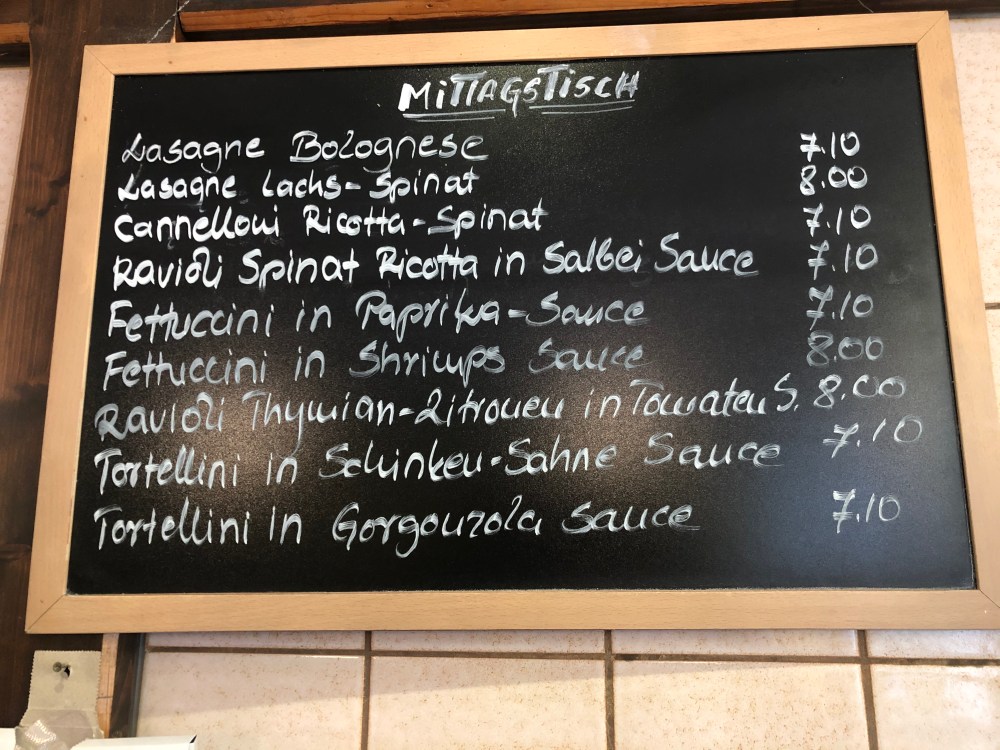 MiTTAGSTiSCH
Lasagne Bolognese 7.10
Lasagne Lachs-Spinat 8.00
Cannelloni Ricotta-Spinat 7.10
Ravioli Spinat Ricotta in Salbei Sauce 7.10
Fettuccini in Paprika-Sauce 7.10
Fettuccini in Shrimps Sauce 8.00
Ravioli Thymian-Zitronen in Tomaten S. 8.00
Tortellini in Schinken-Sahne Sauce 7.10
Tortellini in Gorgonzola Sauce 7.10